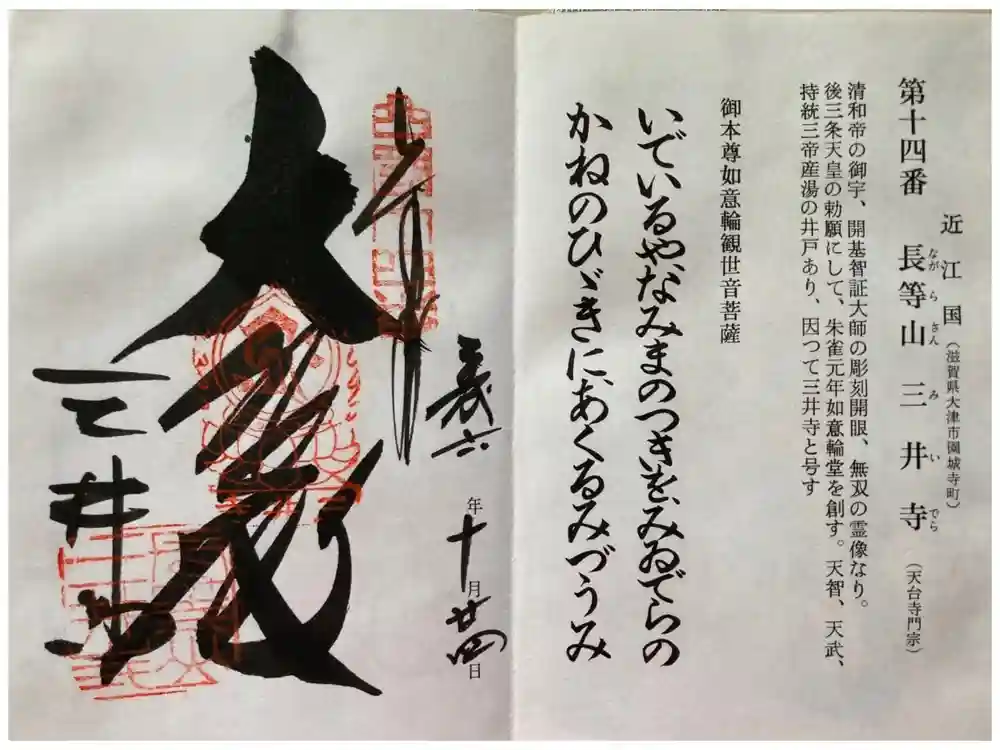 近江国（滋賀県大津市園城寺町）
第十四番 長等山三井寺（天台寺門宗）
ながらさんみいでら
清和帝の御宇、開基智証大師の彫刻開眼、無双の霊像なり。
後三条天皇の勅願にして、朱雀元年如意輪堂を創す。天智、天武、
持統三帝産湯の井戸あり、因つて三井寺と号す
御本尊如意輪観世音菩薩
いでいるやなみまのつきをみゐでらの
かねのひゞきにあくるみづうみ
奉拝
令和六年十月廿四日
大悲殿
三井寺